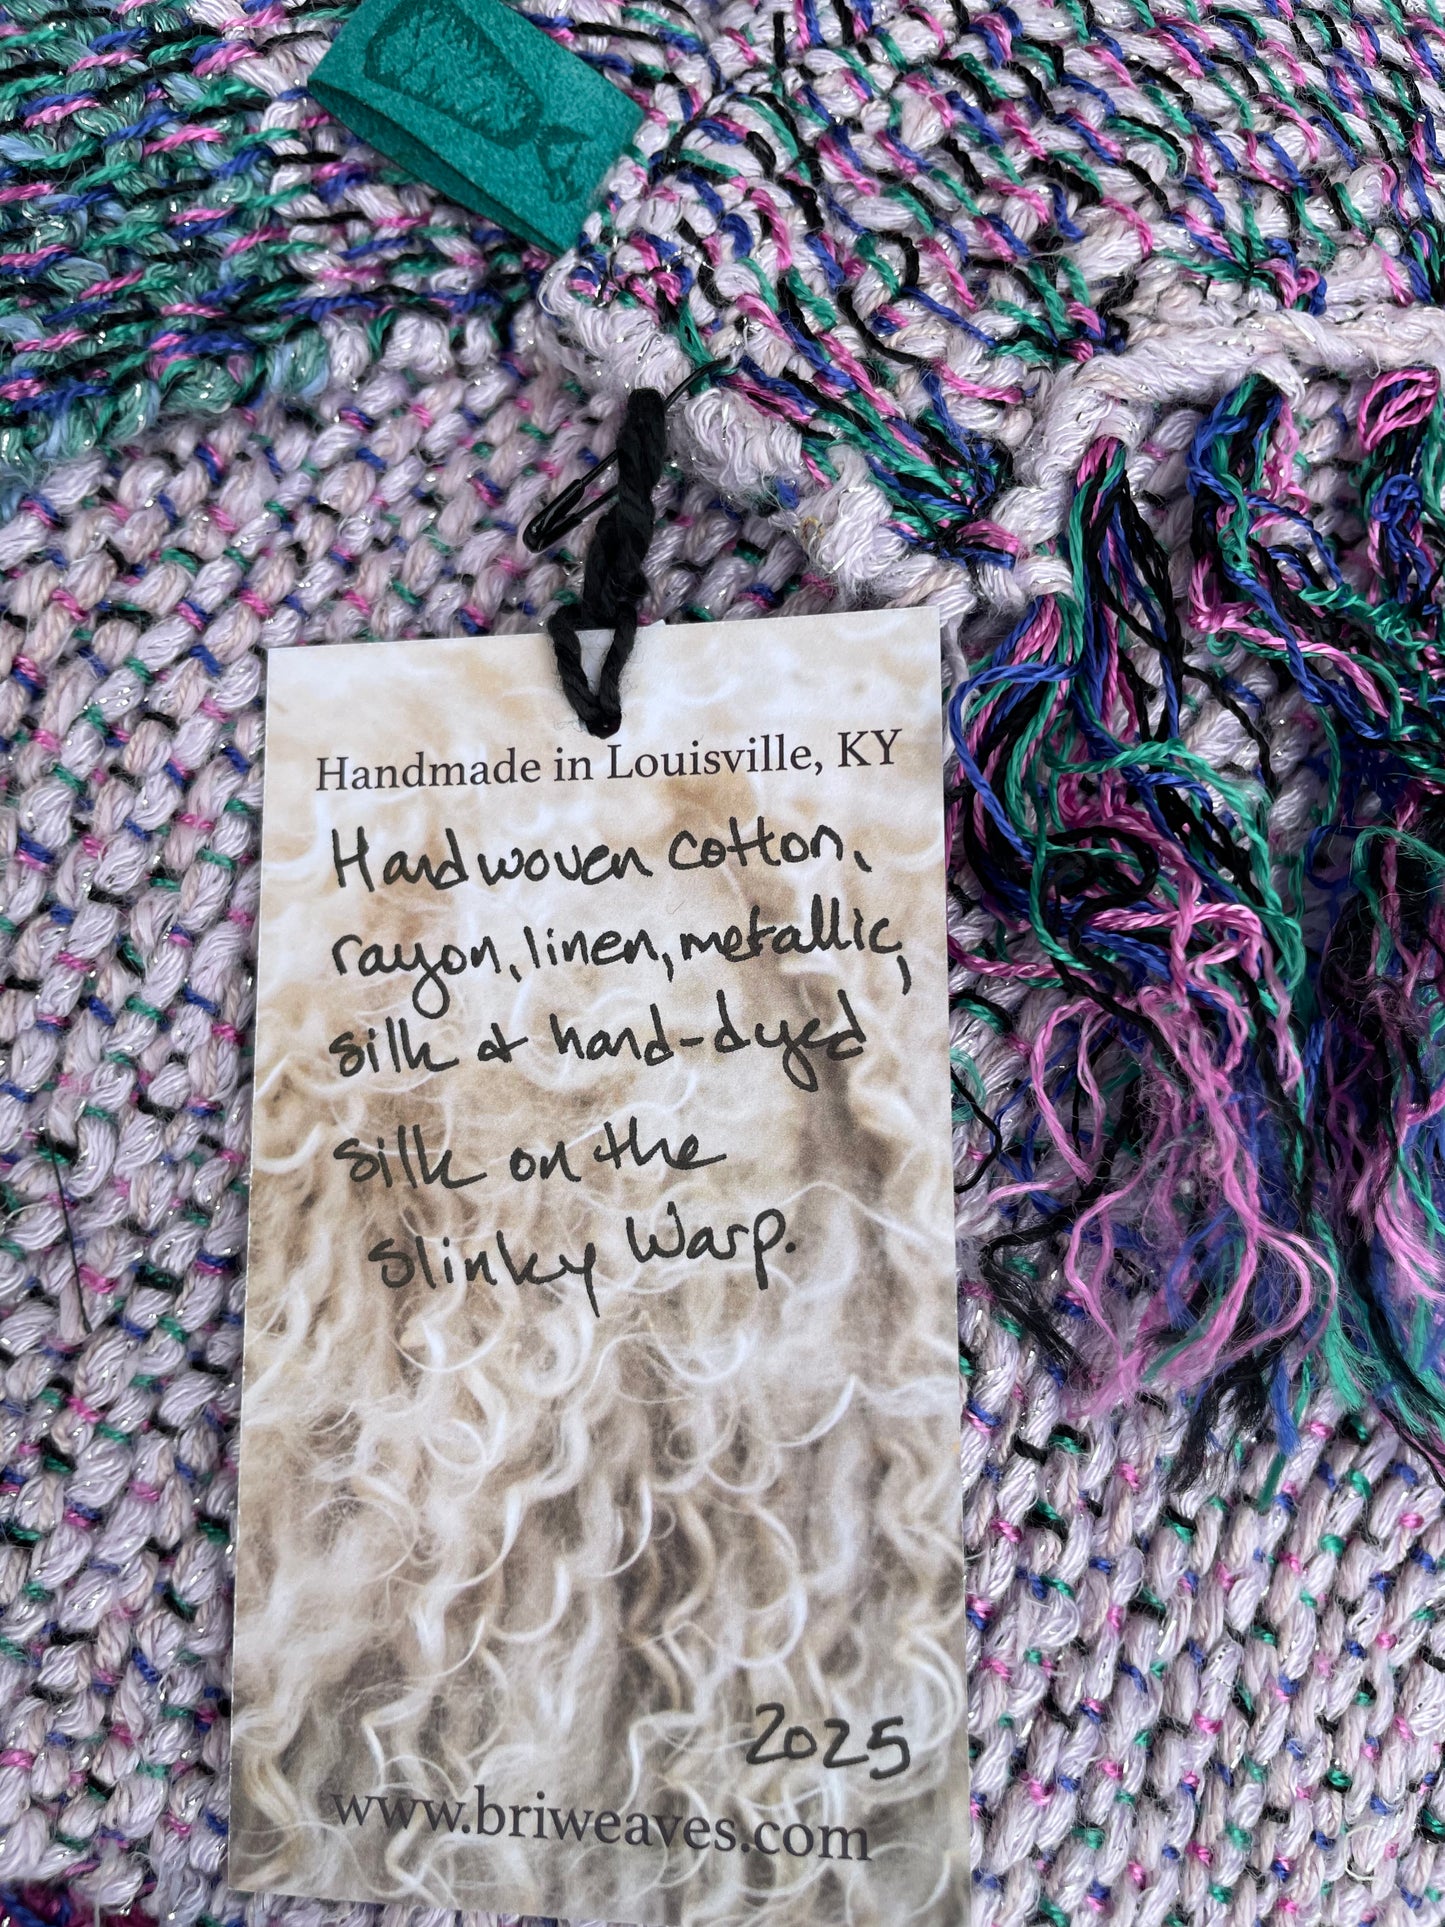 Handmade in Louisville, KY
Handwoven cotton,
rayon, linen, metallic,
silk & hand-dyed
silk on the
Slinky Warp.
2025
www.briweaves.com